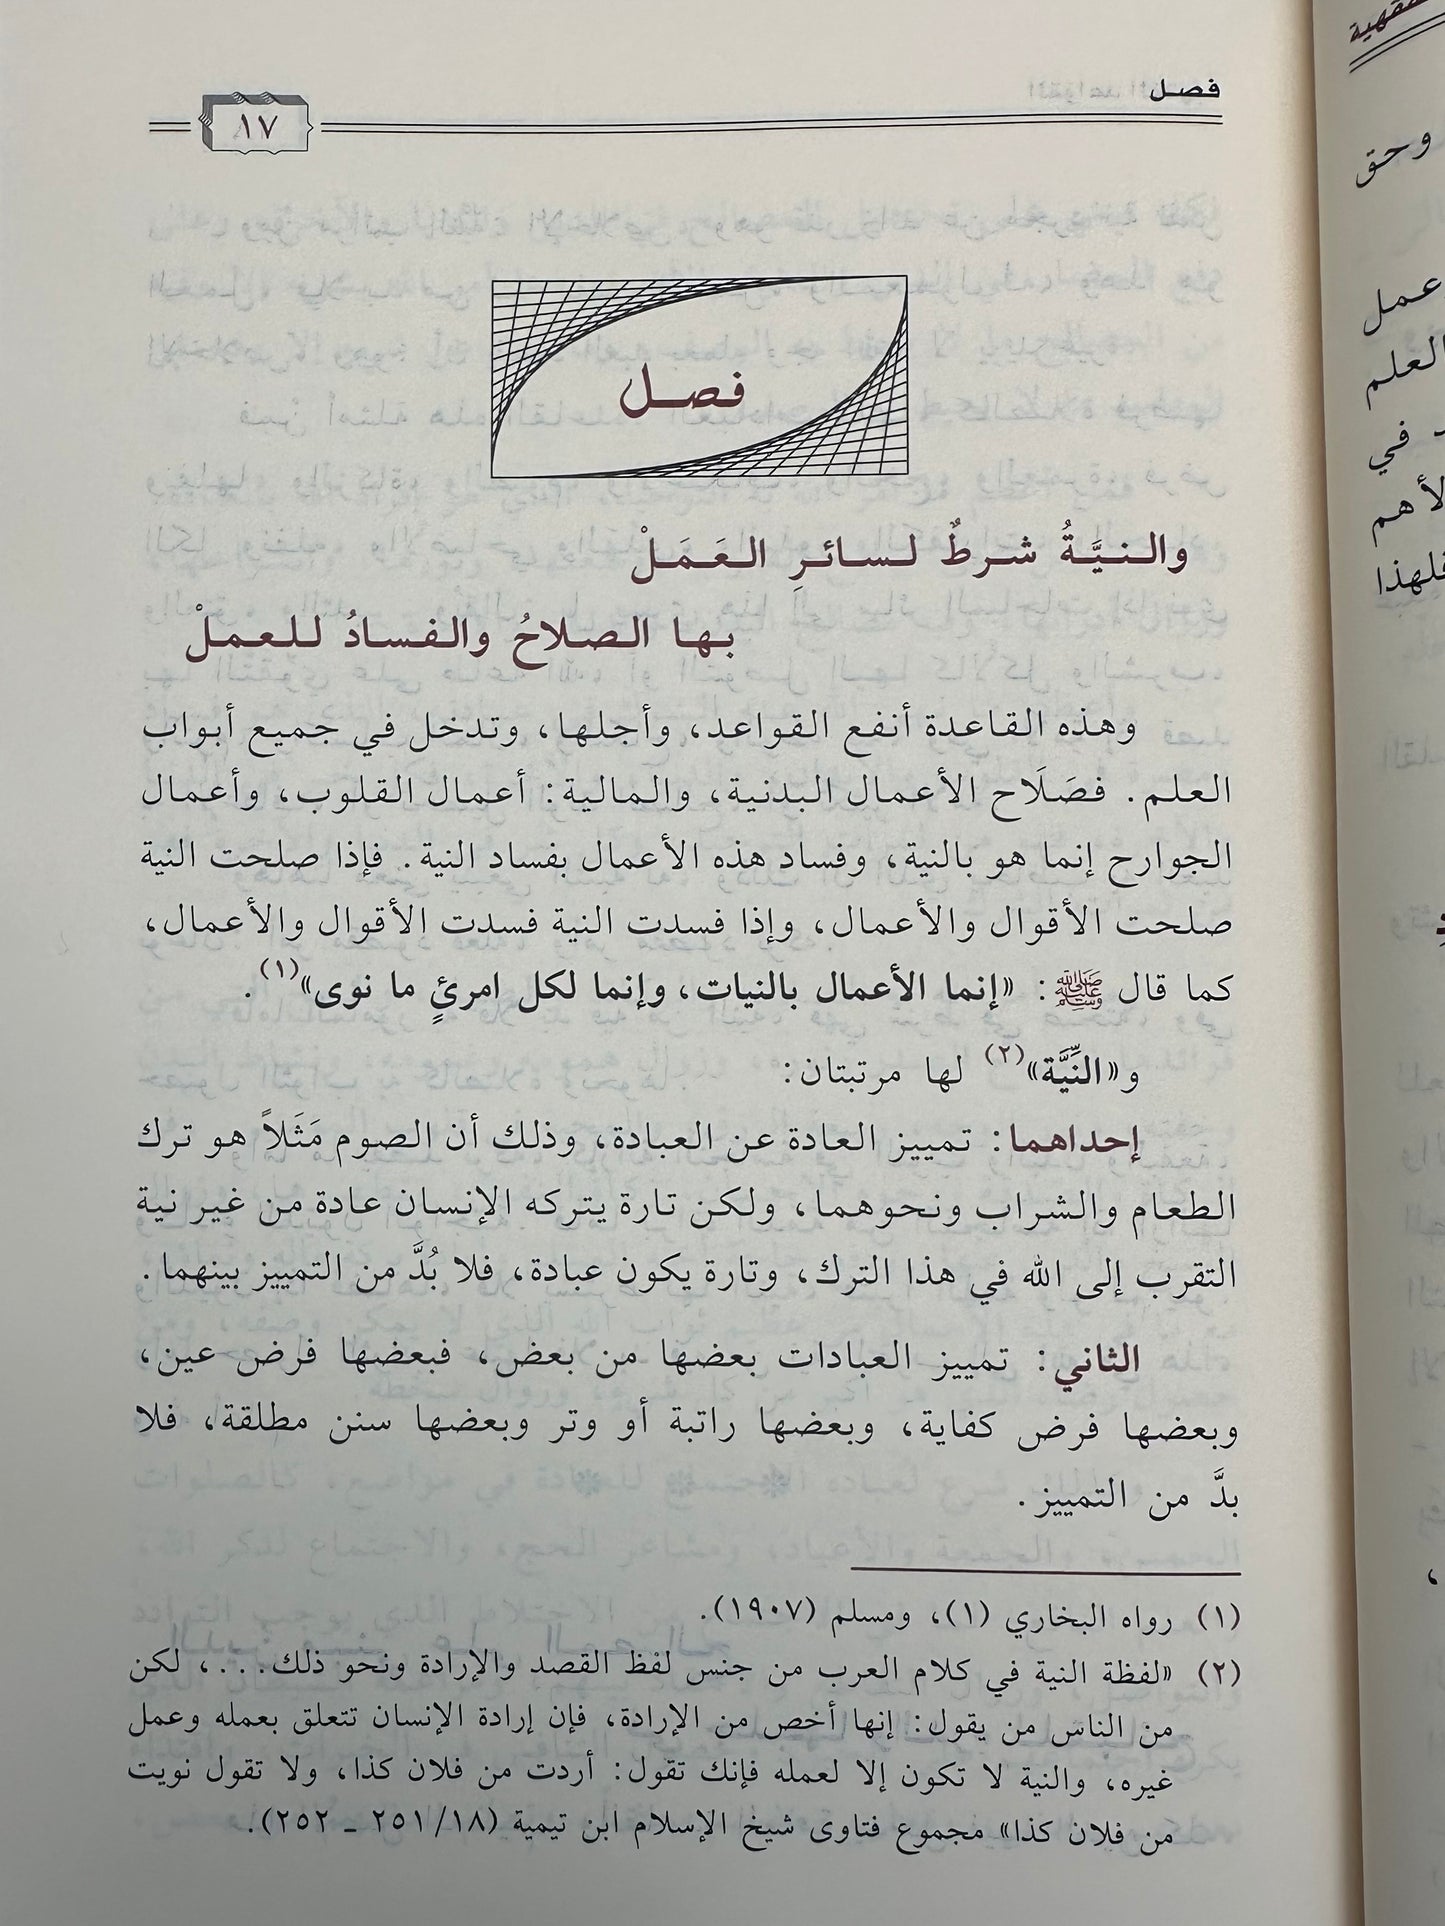 فصل
١٧
فصل
والنيَّةُ شرطٌ لسائرِ العَمَلْ
بها الصلاحُ والفسادُ للعملْ
وهذه القاعدة أنفع القواعد، وأجلها، وتدخل في جميع أبواب
العلم. فصَلَاح الأعمال البدنية، والمالية: أعمال القلوب، وأعمال
الجوارح إنما هو بالنية، وفساد هذه الأعمال بفساد النية. فإذا صلحت النية
صلحت الأقوال والأعمال، وإذا فسدت النية فسدت الأقوال والأعمال،
كما قال ﷺ: «إنما الأعمال بالنيات، وإنما لكل امرئٍ ما نوى»(١).
و«النِّيَّة»(٢) لها مرتبتان:
إحداهما: تمييز العادة عن العبادة، وذلك أن الصوم مَثَلاً هو ترك
الطعام والشراب ونحوهما، ولكن تارة يتركه الإنسان عادة من غير نية
التقرب إلى الله في هذا الترك، وتارة يكون عبادة، فلا بُدَّ من التمييز بينهما.
الثاني: تمييز العبادات بعضها من بعض، فبعضها فرض عين،
وبعضها فرض كفاية، وبعضها راتبة أو وتر وبعضها سنن مطلقة، فلا
بدَّ من التمييز.
(١) رواه البخاري (١)، ومسلم (١٩٠٧).
(٢) «لفظة النية في كلام العرب من جنس لفظ القصد والإرادة ونحو ذلك...، لكن
من الناس من يقول: إنها أخص من الإرادة، فإن إرادة الإنسان تتعلق بعمله وعمل
غيره، والنية لا تكون إلا لعمله فإنك تقول: أردت من فلان كذا، ولا تقول نويت
من فلان كذا» مجموع فتاوى شيخ الإسلام ابن تيمية (٢٥١/١٨ ـ ٢٥٢).
وحق
عمل
العلم
في
فلهذا